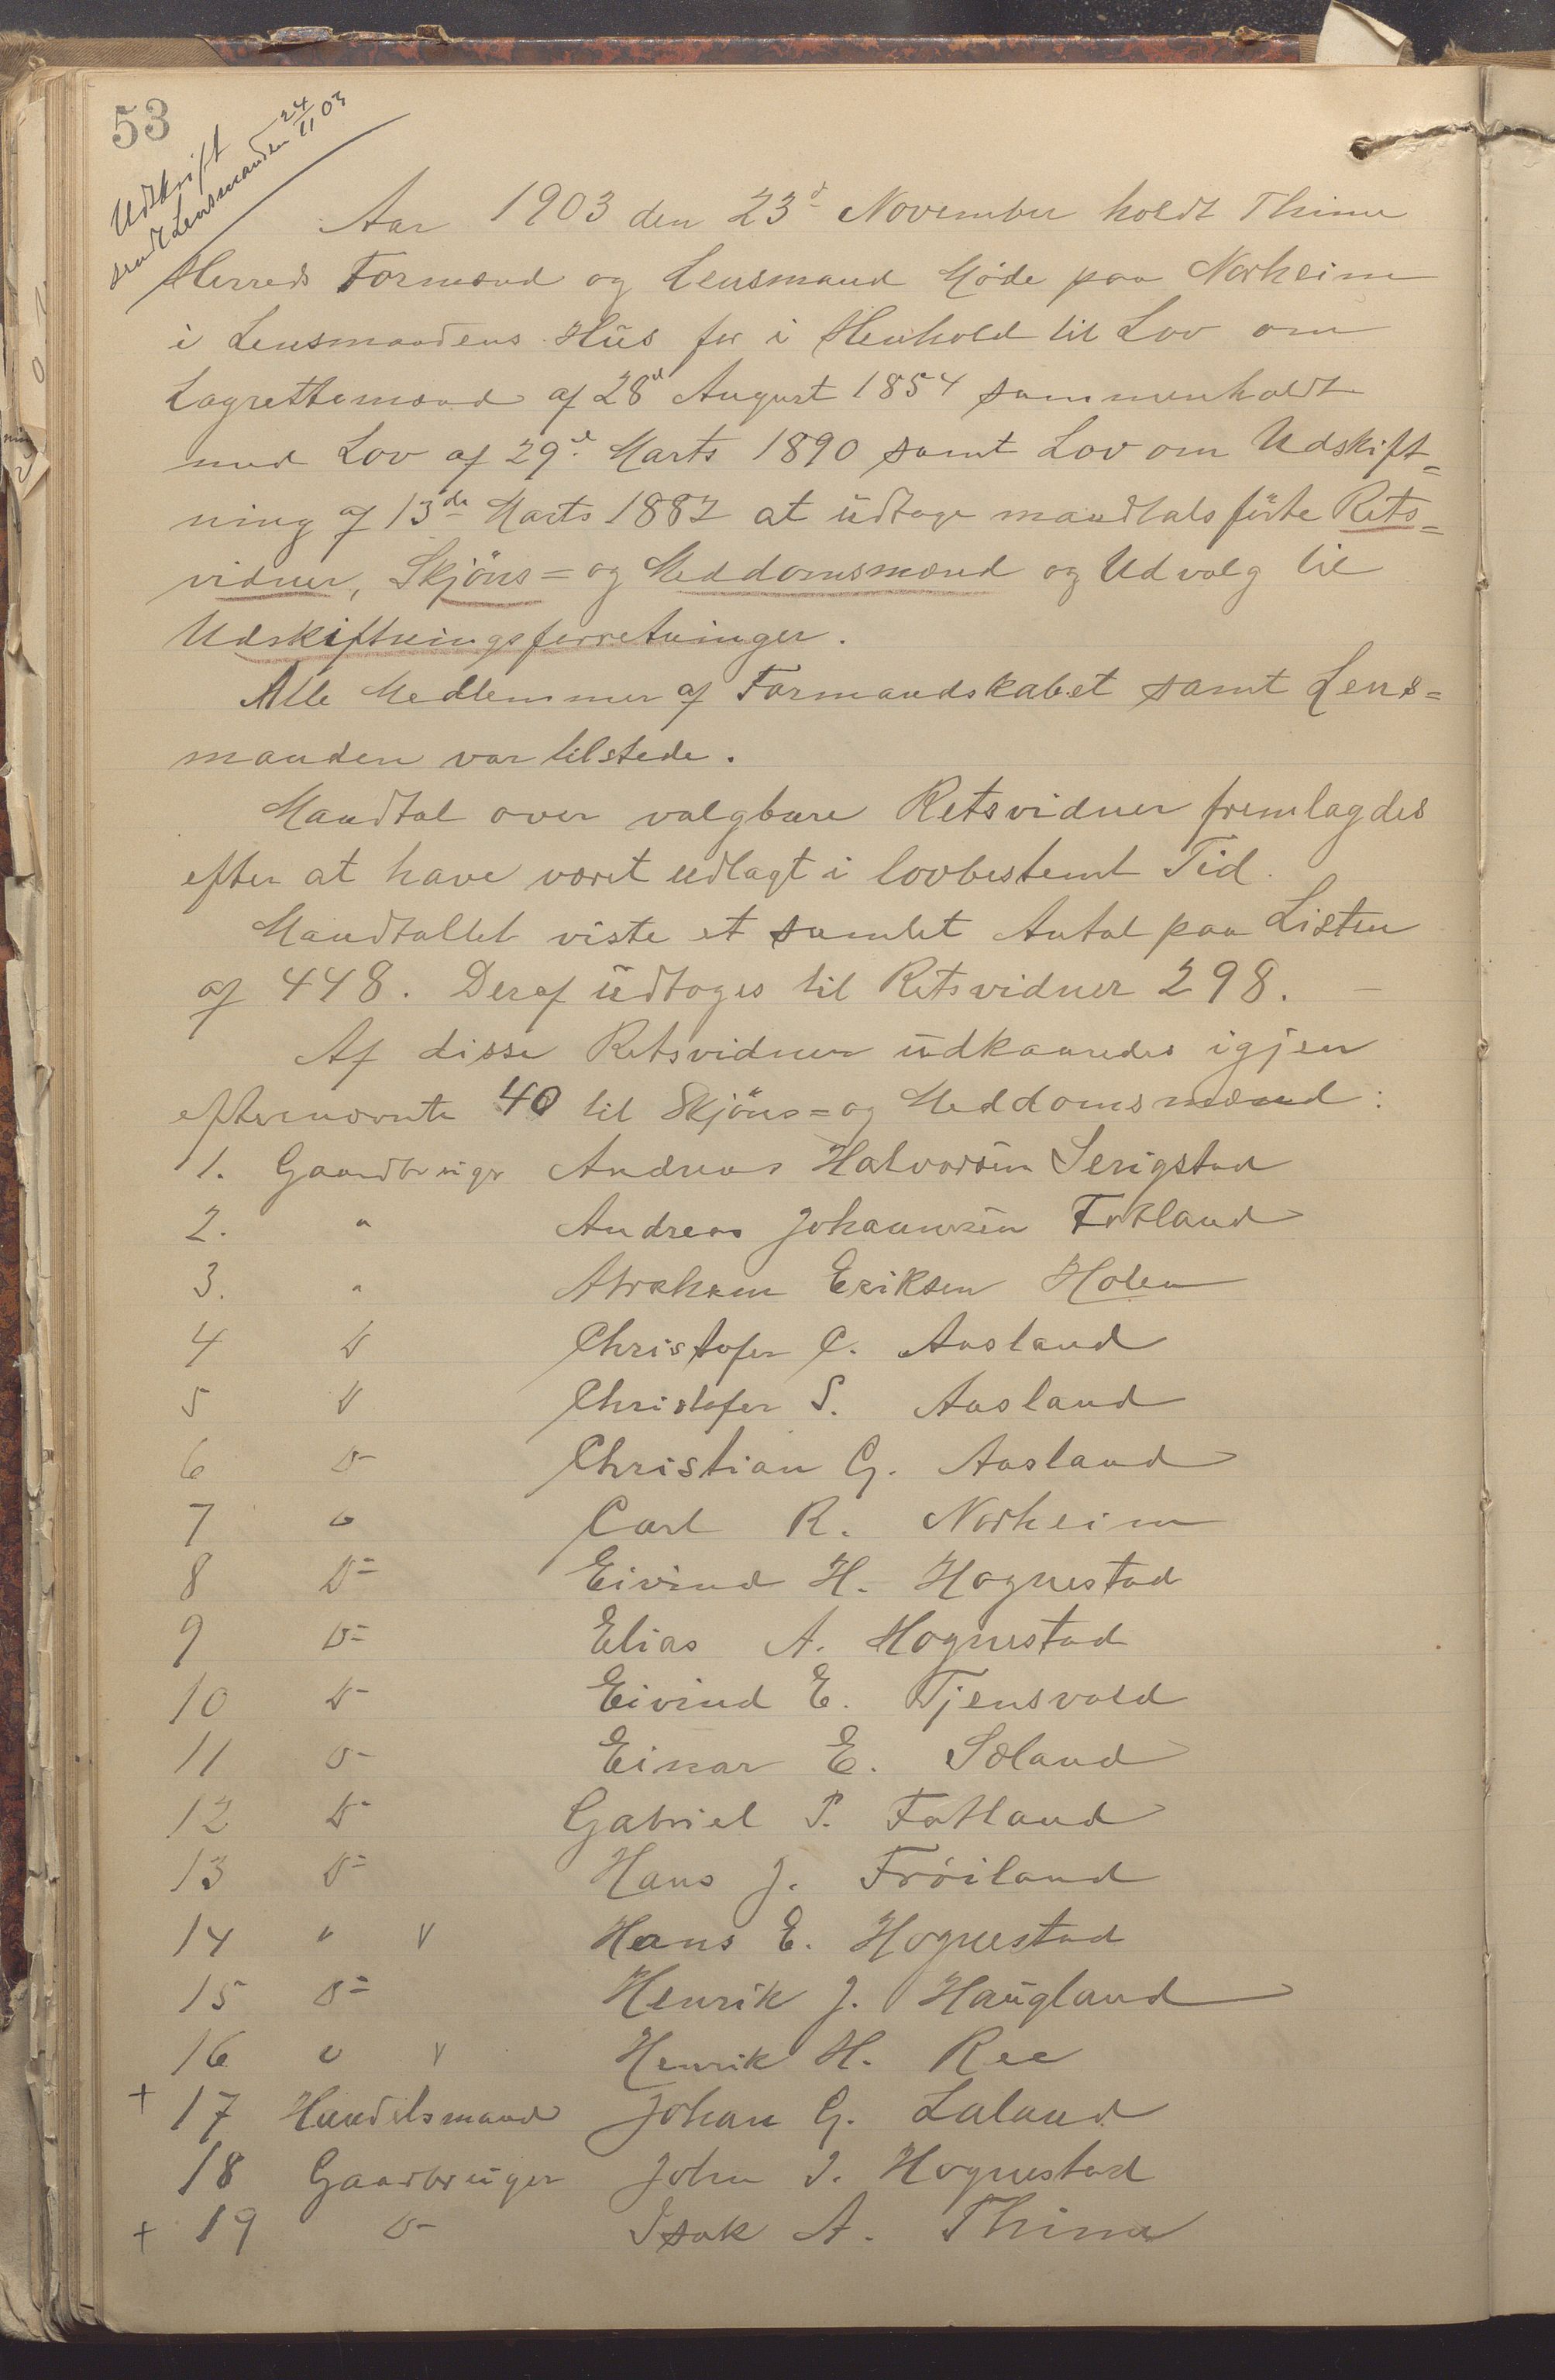 53
Udskrift
sendt Lensmanden 24/11 03
Aar 1903 den 23d November holdt Thime
Herreds Formænd og Lensmand Møde paa Norheim
i Lensmandens Hus for i Henhold til Lov om
Lagrettemænd af 28d August 1854 sammenholdt
med Lov af 29d Marts 1890 samt Lov om Udskift=
ning af 13de Marts 1882 at udtage mandtalsførte Rets=
vidner, Skjöns= og Meddomsmænd og Udvalg til
Udskiftningsforretninger.
Alle Medlemmer af Formandskabet samt Lens=
manden var tilstede.
Mandtal over valgbare Retsvidner fremlagdes
efter at have været udlagt i lovbestemt Tid.
Mandtallet viste et samlet Antal paa Listen
af 448. Deraf udtoges til Retsvidner 298. —
Af disse Retsvidner udkaaredes igjen
efternævnte 40 til Skjöns= og Meddomsmænd:
1. Gaardbruger Andreas Halvorsen Serigstad
2. " Andreas Johannesen Fotland
3. " Abraham Eriksen Holen
4 D Christofer C. Aasland
5 D Christofer S. Aasland
6 D- Christian G. Aasland
7 " Carl R. Norheim
8 D= Eivind H. Hognestad
9 D= Elias A. Hognestad
10 D- Eivind E. Tjensvold
11 D- Einar E. Sæland
12 D- Gabriel P. Fotland
13 D= Hans J. Fröiland
14 " V Hans E. Hognestad
15 D= Henrik J. Haugland
16 " V Henrik H. Ree
+ 17 Handelsmand Johan G. Laland
18 Gaardbruger John J. Hognestad
+ 19 D- Isak A. Thime